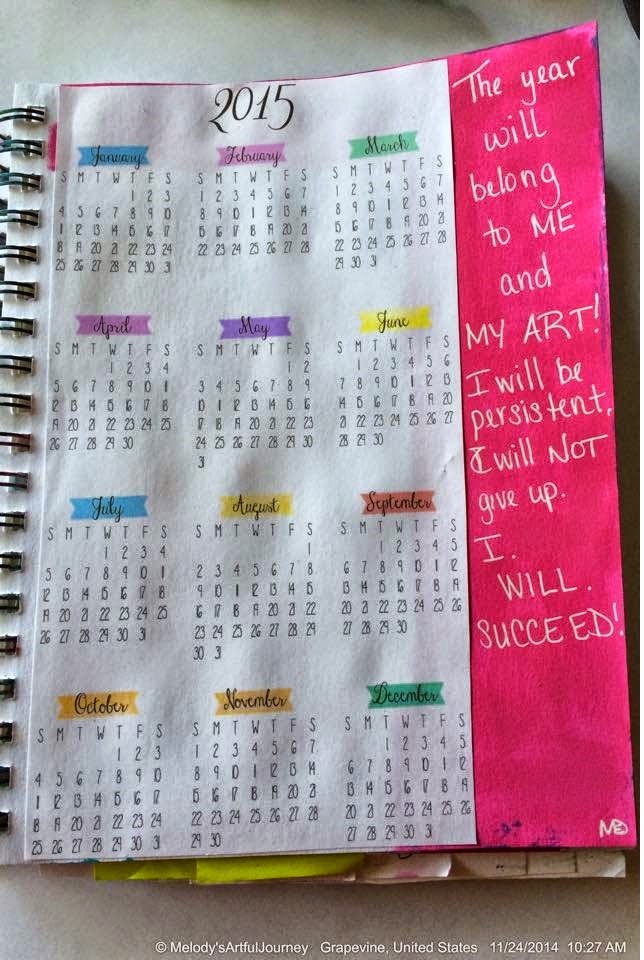 2015
January
S M T W T F S
1 2 3
4 5 6 7 8 9 10
11 12 13 14 15 16 17
18 19 20 21 22 23 24
25 26 27 28 29 30 31
February
S M T W T F S
1 2 3 4 5 6 7
8 9 10 11 12 13 14
15 16 17 18 19 20 21
22 23 24 25 26 27 28
March
S M T W T F S
1 2 3 4 5 6 7
8 9 10 11 12 13 14
15 16 17 18 19 20 21
22 23 24 25 26 27 28
29 30 31
April
S M T W T F S
1 2 3 4
5 6 7 8 9 10 11
12 13 14 15 16 17 18
19 20 21 22 23 24 25
26 27 28 29 30
May
S M T W T F S
1 2
3 4 5 6 7 8 9
10 11 12 13 14 15 16
17 18 19 20 21 22 23
24 25 26 27 28 29 30
31
June
S M T W T F S
1 2 3 4 5 6
7 8 9 10 11 12 13
14 15 16 17 18 19 20
21 22 23 24 25 26 27
28 29 30
July
S M T W T F S
1 2 3 4
5 6 7 8 9 10 11
12 13 14 15 16 17 18
19 20 21 22 23 24 25
26 27 28 29 30 31
August
S M T W T F S
1
2 3 4 5 6 7 8
9 10 11 12 13 14 15
16 17 18 19 20 21 22
23 24 25 26 27 28 29
30 31
September
S M T W T F S
1 2 3 4 5
6 7 8 9 10 11 12
13 14 15 16 17 18 19
20 21 22 23 24 25 26
27 28 29 30
October
S M T W T F S
1 2 3
4 5 6 7 8 9 10
11 12 13 14 15 16 17
18 19 20 21 22 23 24
25 26 27 28 29 30 31
November
S M T W T F S
1 2 3 4 5 6 7
8 9 10 11 12 13 14
15 16 17 18 19 20 21
22 23 24 25 26 27 28
29 30
December
S M T W T F S
1 2 3 4 5
6 7 8 9 10 11 12
13 14 15 16 17 18 19
20 21 22 23 24 25 26
27 28 29 30 31
The year
will
belong
to ME
and
MY ART!
I will be
persistent.
I will NOT
give up.
I.
WILL.
SUCCEED!
© Melody'sArtfulJourney Grapevine, United States 11/24/2014 10:27 AM